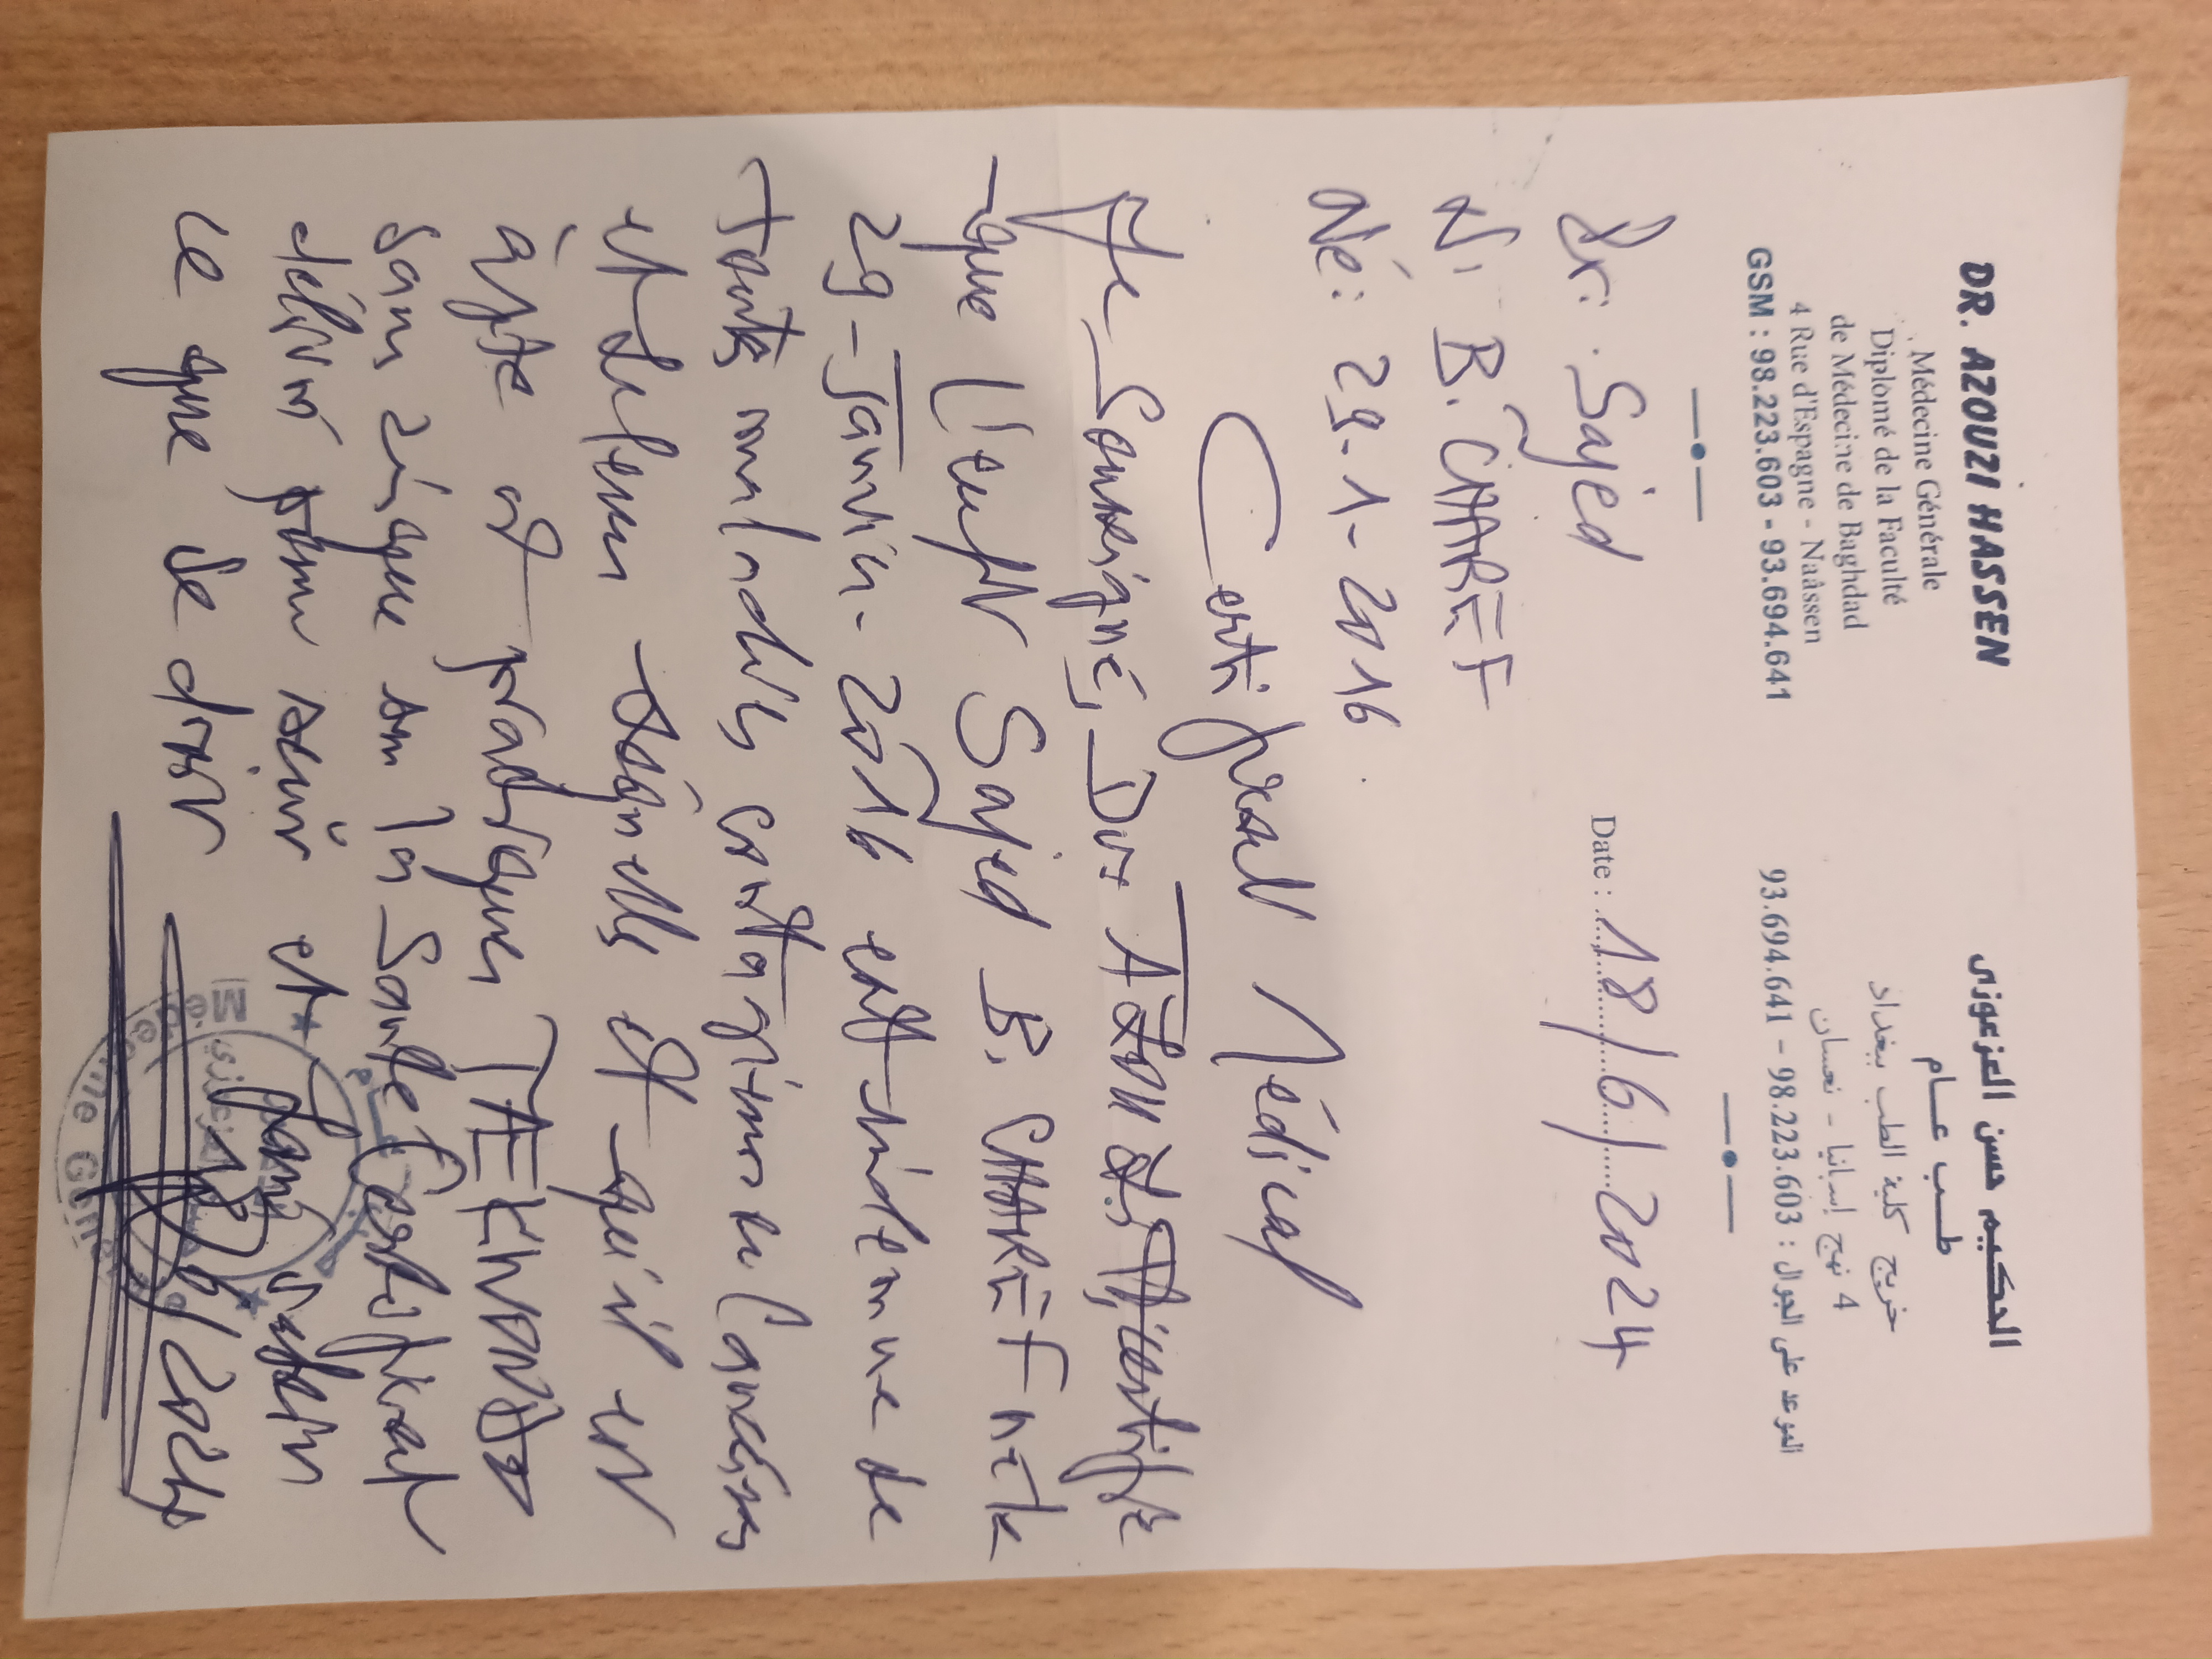 DR. AZOUZI HASSEN
Médecine Générale
Diplômé de la Faculté
de Médecine de Baghdad
4 Rue d'Espagne - Naâssen
GSM : 98.223.603 - 93.694.641
الحكيم حسن العزعوزي
طب عام
خريج كلية الطب ببغداد
4 نهج إسبانيا - نعسان
الموعد على الجوال : 98.223.603 - 93.694.641
Date : 18/6/2024
Sajed
B. CHAREF
Né: 29-1-2016
Certificat Médical
Je Soussigné, Dr AZOUZI, certifie
que l'enfant Sajed B. CHAREF né le
29 - Janvier - 2016 est indemne de
toutes maladies contagieuses
et qu'il est
apte à pratiquer
sans risque sur la Santé Certificat
délivré pour servir et faire valoir
ce que de droit 18/6/2024
Médecine Géné